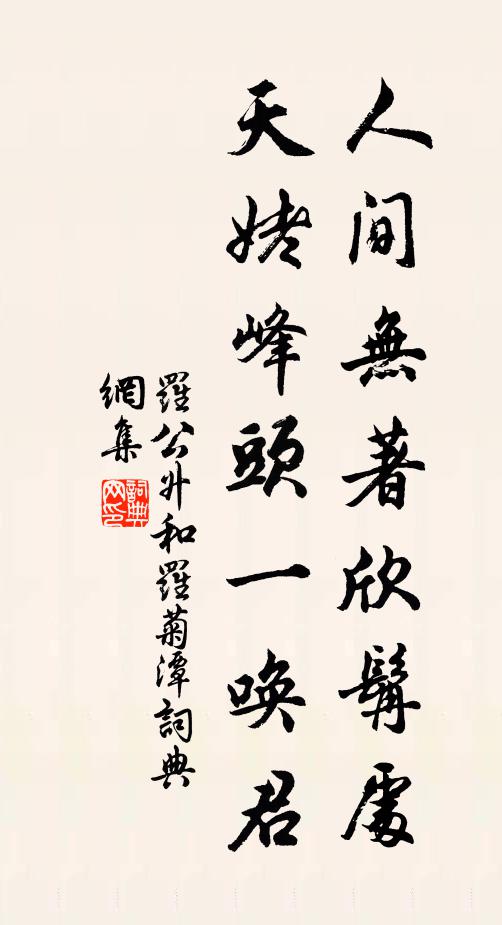 人間無著欣髯處
天姥峰頭一喚君
羅公升和羅菊潭詞典
網集
詞典
网印